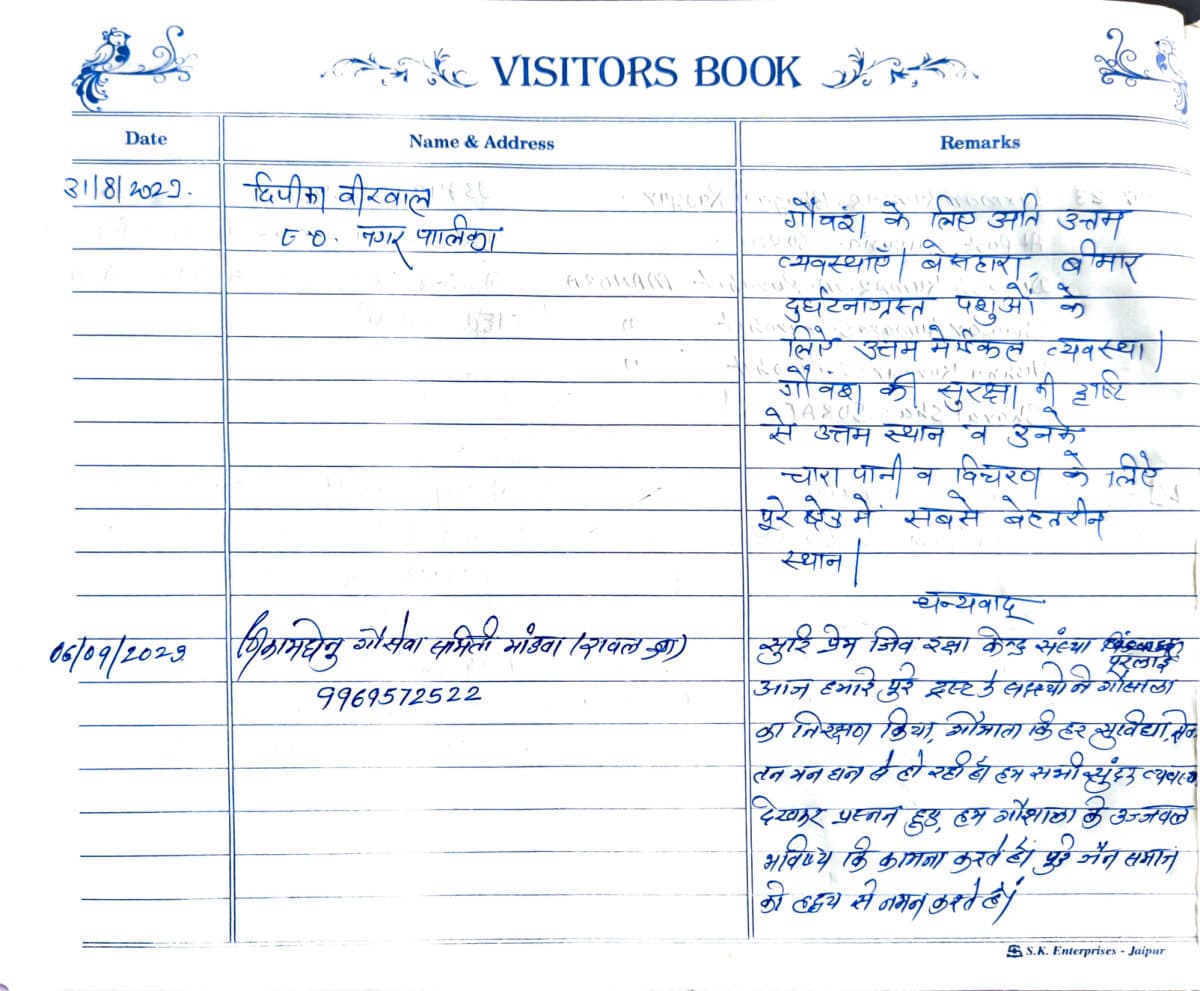 VISITORS BOOK
Date Name & Address Remarks
31/8/2023. दिपीका वीरवाल
नगर पालिका
गौवंश के लिए अति उत्तम
व्यवस्थाएँ। बेसहारा, बीमार
दुर्घटनाग्रस्त पशुओं के
लिऐ उत्तम मेडिकल व्यवस्था।
गौवंश की सुरक्षा की दृष्टि
से उत्तम स्थान व उनके
चारा पानी व विचरण के लिऐ
पूरे क्षेत्र में सबसे बेहतरीन
स्थान।
धन्यवाद्
06/09/2023 श्री कामधेनु गौसेवा समिती मांडवा (रावल)
9969572522
सुरि प्रेम जिव रक्षा केन्द्र संस्था
आज हमारे पुरे ट्रस्ट के सदस्यो ने गौसाला
का निरक्षण किया, गौमाता कि हर सुविधा, सेवा
तन मन धन से हो रही है। हम सभी सुंदर व्यवस्था
देखकर प्रसन्न हुए, हम गौशाला के उज्जवल
भविष्य कि कामना करते है। पुरे जैन समाज
को हृदय से नमन करते है।
S.K. Enterprises - Jaipur